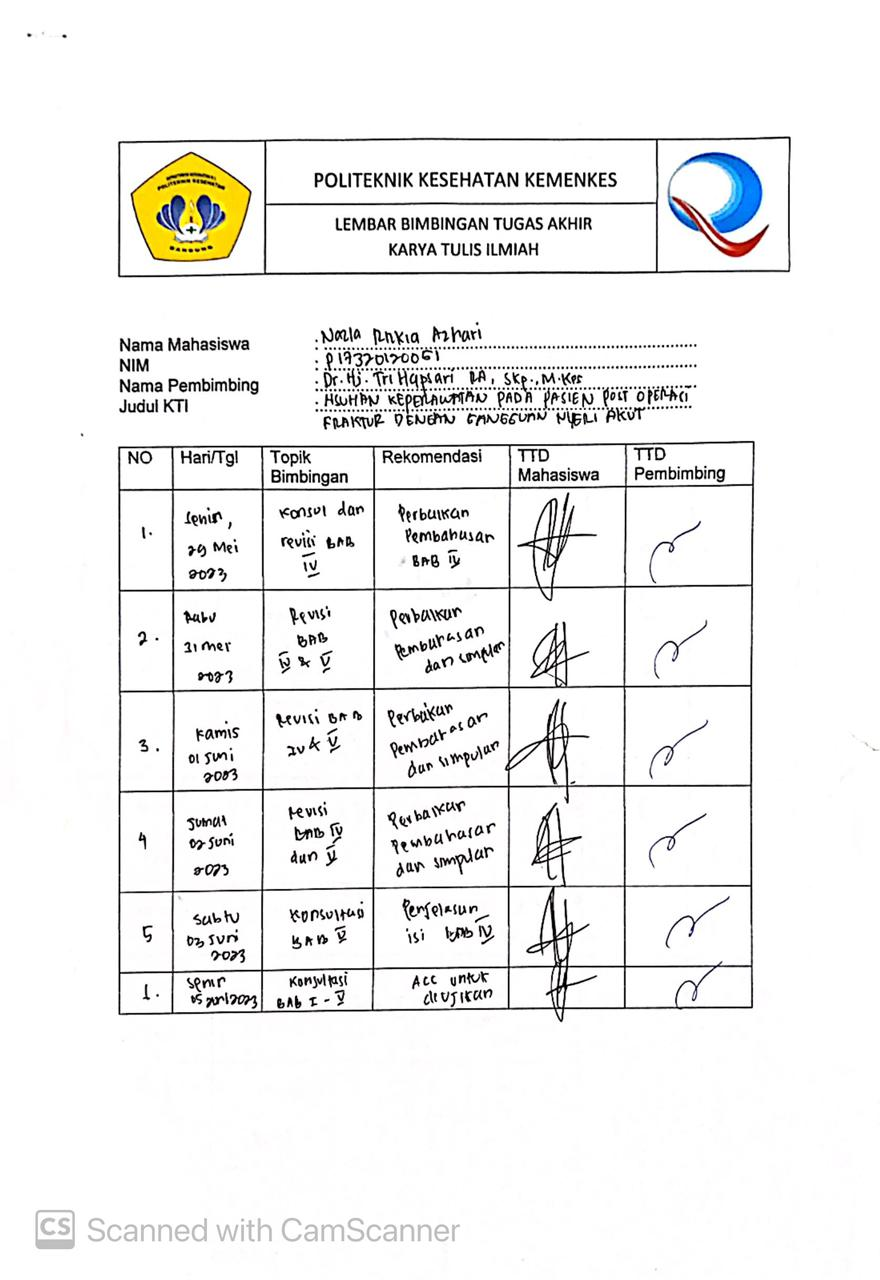 POLITEKNIK KESEHATAN
BANDUNG
POLITEKNIK KESEHATAN KEMENKES
LEMBAR BIMBINGAN TUGAS AKHIR
KARYA TULIS ILMIAH
Nama Mahasiswa : Nazla Azhari
NIM : P17320120061
Nama Pembimbing : Dr. Hj. Tri Hapsari RA, Skp., M.Kes
Judul KTI : ASUHAN KEPERAWATAN PADA PASIEN POST OPERASI
FRAKTUR DENGAN GANGGUAN NYERI AKUT
NO Hari/Tgl Topik Bimbingan Rekomendasi TTD Mahasiswa TTD Pembimbing
1. Senin, 29 Mei 2023 Konsul dan revisi BAB IV Perbaikan Pembahasan BAB IV
2. Rabu 31 Mei 2023 Revisi BAB IV & V Perbaikan Pembahasan dan simpulan
3. Kamis 01 Juni 2023 Revisi BAB IV & V Perbaikan Pembahasan dan simpulan
4 Jumat 02 Juni 2023 revisi BAB IV dan V Perbaikan Pembahasan dan simpulan
5 Sabtu 03 Juni 2023 Konsultasi BAB V Penjelasan isi BAB IV
1. Senin 05 2023 Konsultasi BAB I - V ACC untuk diujikan
CS Scanned with CamScanner